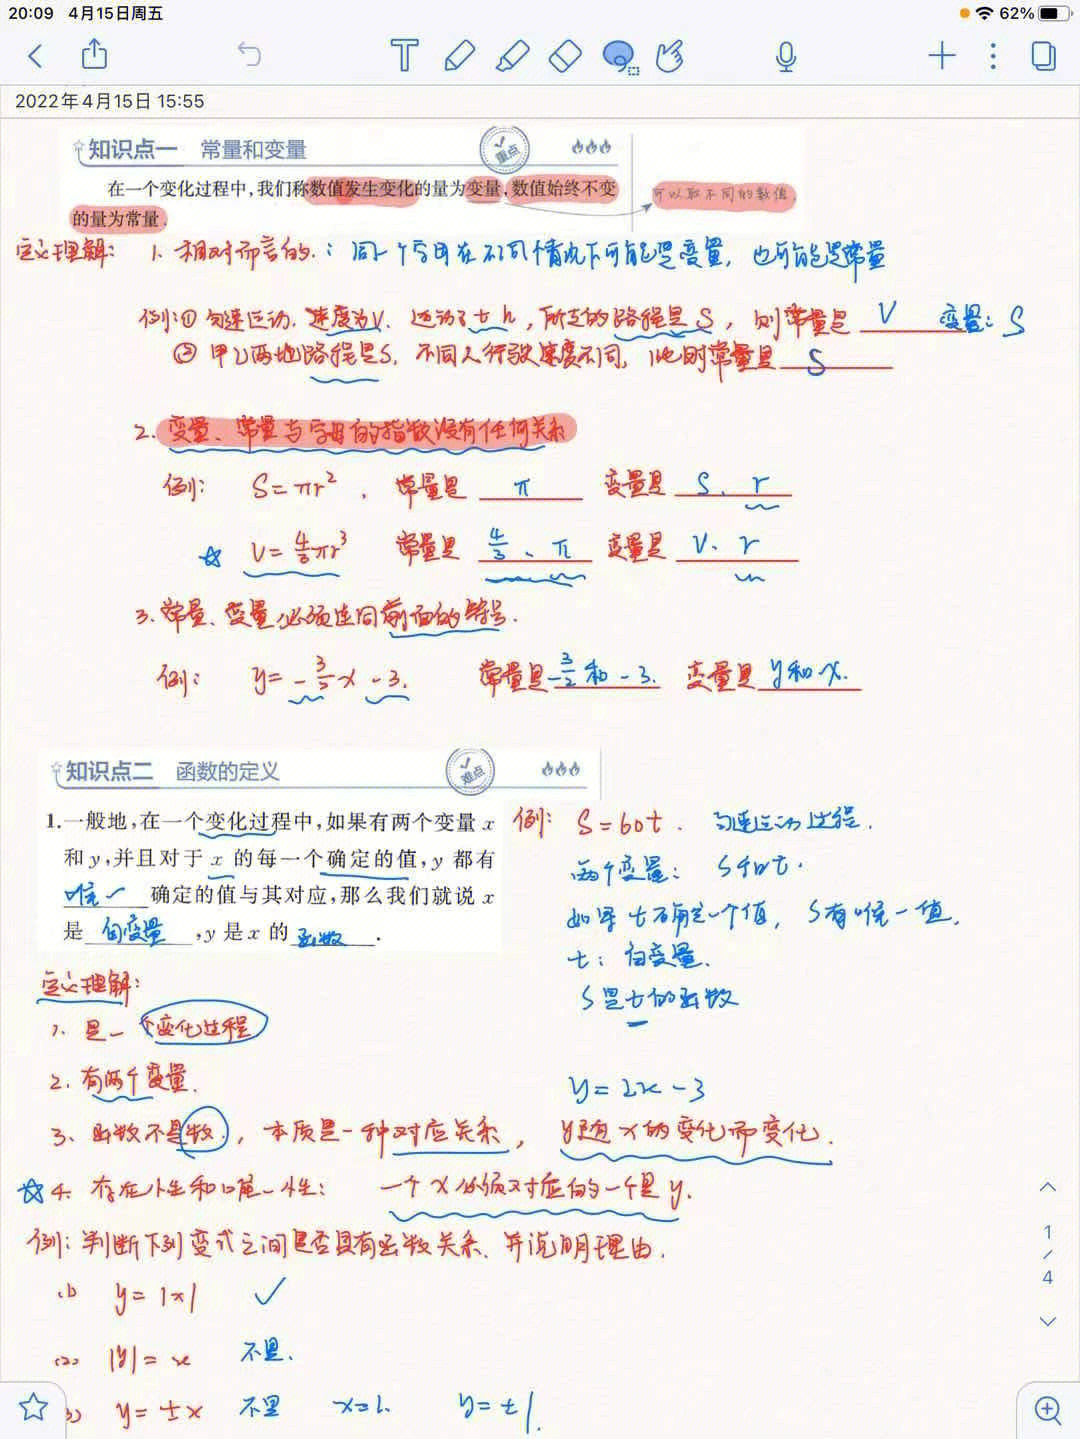 20:09 4月15日周五
62%
2022年4月15日 15:55
知识点一 常量和变量
重点
在一个变化过程中,我们称数值发生变化的量为变量,数值始终不变
的量为常量.
可以取不同的数值.
定义理解: 1. 相对而言的.: 同一个字母在不同情况下可能是变量, 也可能是常量
例:① 匀速运动. 速度为V. 运动了t h, 所走的路程是S, 则常量是 V 变量: S
② 甲乙两地路程是S, 不同人行驶速度不同, 此时常量是 S
2. 变量、常量与字母的指数没有任何关系
例: S=πr². 常量是 π 变量是 S、r
☆ V=4/3πr³ 常量是 4/3、π 变量是 V、r
3. 常量、变量必须连同前面的符号.
例: y=-3/2x-3. 常量是-3/2和-3. 变量是 y和x.
知识点二 函数的定义
难点
1.一般地,在一个变化过程中,如果有两个变量 x
和 y,并且对于 x 的每一个确定的值,y 都有
唯一 确定的值与其对应,那么我们就说 x
是 自变量 ,y 是 x 的 函数 .
例: S=60t. 匀速运动过程.
两个变量: S和t.
如果t确定一个值, S有唯一值.
t: 自变量.
S是t的函数
定义理解:
1. 是一个变化过程
2. 有两个变量.
y=2x-3
3、函数不是数, 本质是一种对应关系, y随x的变化而变化.
☆4. 存在性和唯一性: 一个x必须对应的一个是y.
例: 判断下列变式之间是否具有函数关系. 并说明理由.
(1) y=|x| ✓
(2) |y|=x 不是.
3) y=±x 不是 x=1. y=±1.
1/4